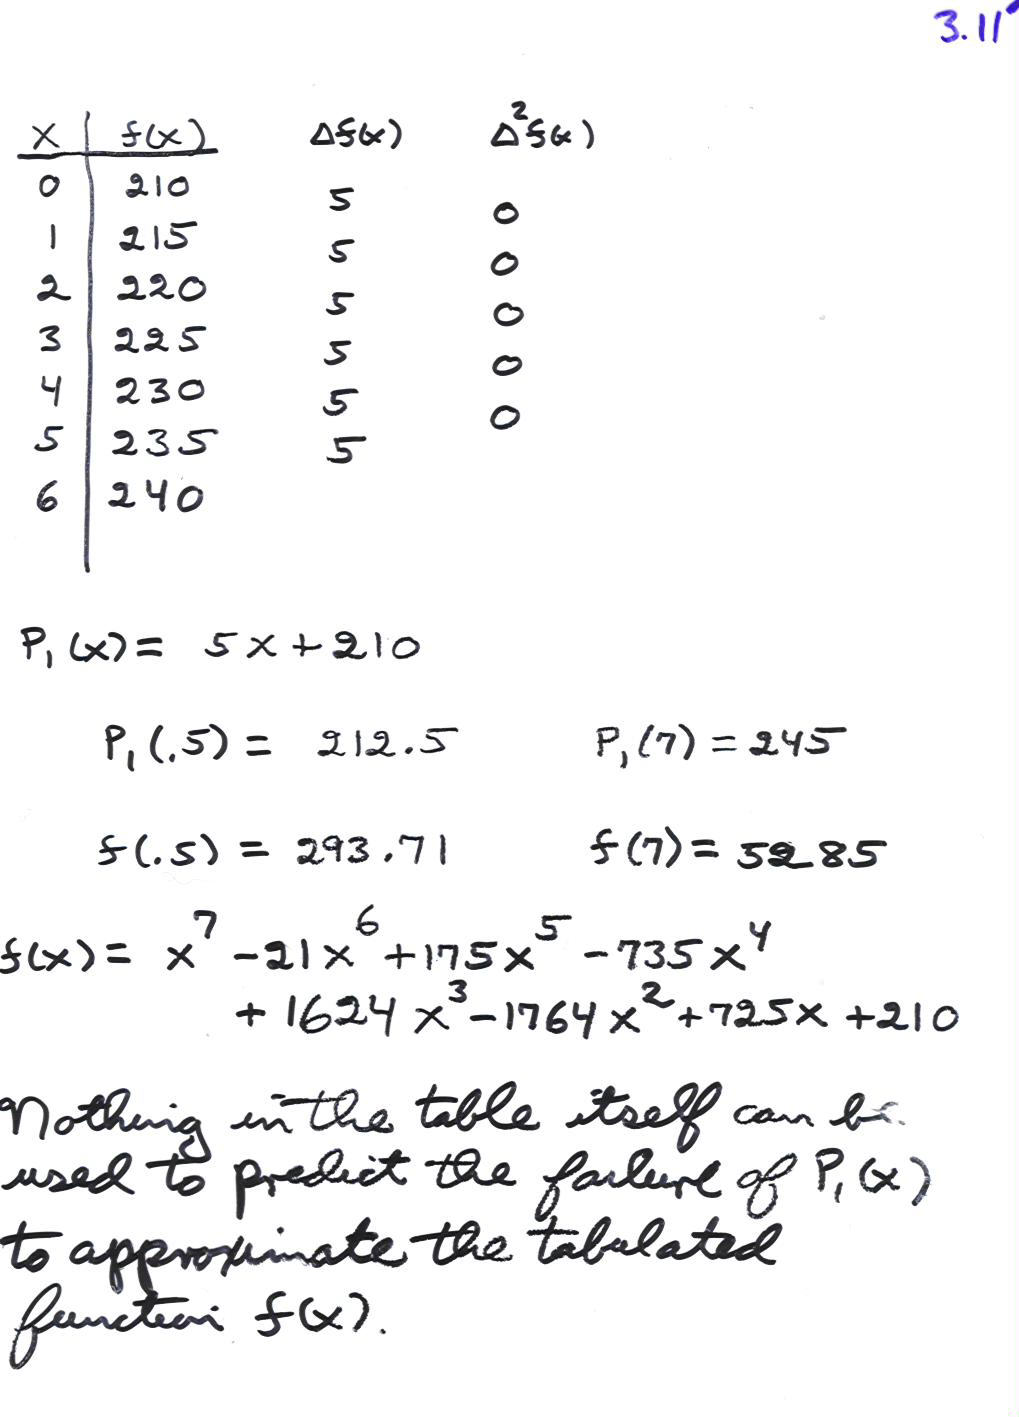 3.11
x f(x) Δf(x) Δ²f(x)
0 210
5
0
1 215
5
0
2 220
5
0
3 225
5
0
4 230
5
0
5 235
5
6 240
P₁(x) = 5x + 210
P₁(.5) = 212.5 P₁(7) = 245
f(.5) = 293.71 f(7) = 5285
f(x) = x⁷ - 21x⁶ + 175x⁵ - 735x⁴
+ 1624x³ - 1764x² + 725x + 210
Nothing in the table itself can be
used to predict the failure of P₁(x)
to approximate the tabulated
function f(x).